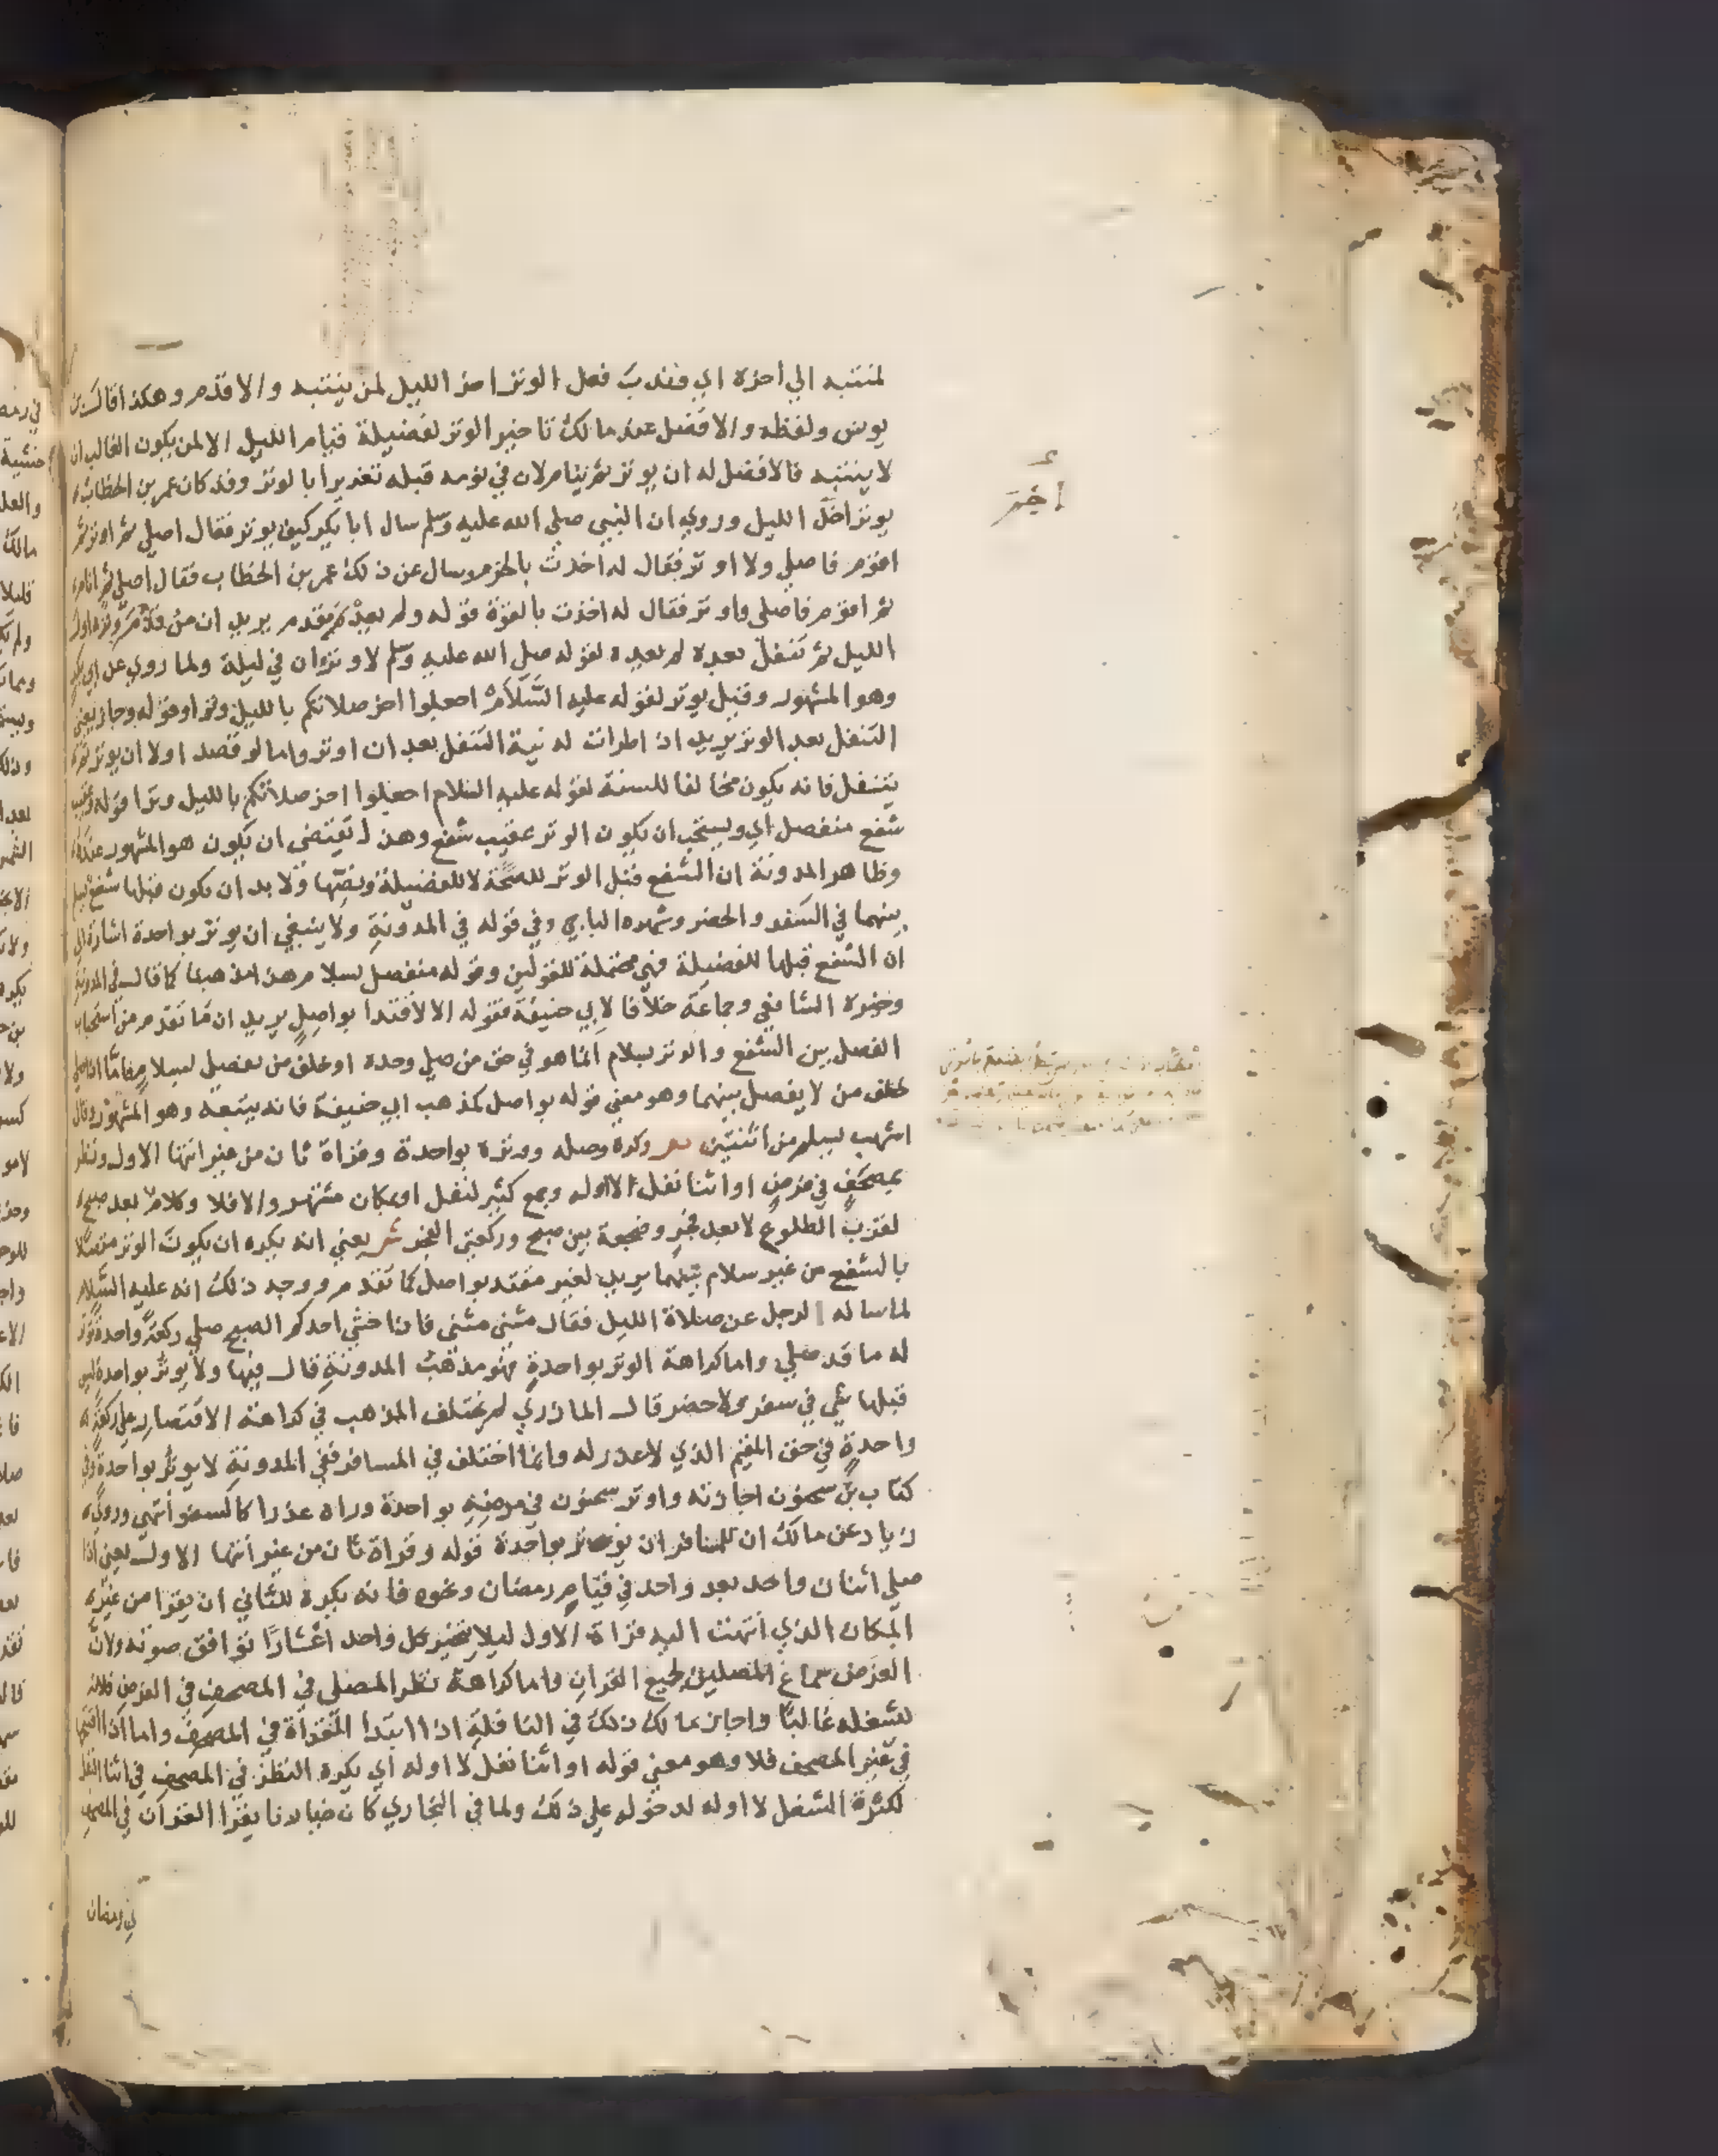 لمنتبه الي اخره اي وندب فعل الوتر اخر الليل لمن ينتبه والا قدم وهكذا قال بن
يونس ولفظه والافضل عند مالك تاخير الوتر لفضيلة قيام الليل الا لمن يكون الغالب ان
لا ينتبه فالافضل له ان يوتر ثم ينام لان في نومه قبله تغريرا بالوتر وقد كان عمر بن الخطاب
يوتر اخر الليل وروي ان النبي صلي الله عليه وسلم سال ابا بكر كيف يوتر فقال اصلي ثم اوتر ثم
اقوم فاصلي ولا اوتر فقال له اخذت بالحزم وسال عن ذلك عمر بن الخطاب فقال اصلي ثم انام
ثم اقوم فاصلي واوتر فقال له اخذت بالقوة قوله ولم يعد مقدم يريد ان من قدم وتره اول
الليل ثم تنفل بعده لم يعده لقوله صلي الله عليه وسلم لا وتران في ليلة ولما روي عن ابي بكر
وهو المشهور وقيل يوتر لقوله عليه السلام اجعلوا اخر صلاتكم بالليل وترا وقوله وجاز يعني
التنفل بعد الوتر يريد اذا طرات له نية التنفل بعد ان اوتر واما لو قصد اولا ان يوتر ثم
يتنفل فانه يكون مخالفا للسنة لقوله عليه السلام اجعلوا اخر صلاتكم بالليل وترا قوله وعقيب
شفع منفصل اي ويستحب ان يكون الوتر عقيب شفع وهذا يقتضي ان يكون هو المشهور عنده
وظاهر المدونة ان الشفع قبل الوتر للصحة لا للفضيلة ونصها ولا بد ان يكون قبلها شفع يسلم
بينهما في السفر والحضر وشهره الباجي وفي قوله في المدونة ولا ينبغي ان يوتر بواحدة اشارة الي
ان الشفع قبلها للفضيلة فهي محتملة للقولين وقوله منفصل بسلام هذا مذهبنا كما قال في المدونة
ونحوه الشافعي وجماعة خلافا لابي حنيفة فقوله الا لاقتدا بواصل يريد ان ما تقدم من استحباب
الفصل بين الشفع والوتر بسلام انما هو في حق من صلي وحده او خلف من يفصل بسلام واما ان صلي
خلف من لا يفصل بينهما وهو معني قوله بواصل كمذهب ابي حنيفة فانه يتبعه وهو المشهور وقال
اشهب يسلم من اثنتين ص وكره وصله ووتره بواحدة وقراة ثان من غير انتها الاول ونظر
بمصحف في فرض او اثنا نفل لا اوله وجمع كثير لنفل او بمكان مشتهر والا فلا وكلام بعد صبح
لقرب الطلوع لا بعد فجر وضجعة بين صبح وركعتي الفجر ش يعني انه يكره ان يكون الوتر متصلا
بالشفع من غير سلام بينهما يريد لغير مقتد بواصل كما تقدم ووجه ذلك انه عليه السلام
لما ساله الرجل عن صلاة الليل فقال مثني مثني فاذا خشي احدكم الصبح صلي ركعة واحدة توتر
له ما قد صلي واما كراهة الوتر بواحدة فهو مذهب المدونة قال فيها ولا يوتر بواحدة ليس
قبلها شي في سفر ولا حضر قال المازري لم يختلف المذهب في كراهته الاقتصار علي ركعة
واحدة في حق المقيم الذي لا عذر له وانما اختلف في المسافر ففي المدونة لا يوتر بواحدة وفي
كتاب بن سحنون اجازته واوتر سحنون في مرضه بواحدة وراه عذرا كالسفر انتهي وروي
زياد عن مالك ان للمسافر ان يوتر بواحدة قوله وقراة ثان من غير انتها الاول يعني اذا
صلي اثنان واحد بعد واحد في قيام رمضان ونحوه فانه يكره للثاني ان يقرا من غير
المكان الذي انتهت اليه قراة الاول ليلا يتخير كل واحد اعشارا توافق صوته ولان
الغرض سماع المصلين لجميع القران واما كراهة نظر المصلي في المصحف في الفرض فلانه
يشغله غالبا واجاز مالك ذلك في النافلة اذا ابتدا القراة في المصحف واما اذا افتتحها
في غير المصحف فلا وهو معني قوله او اثنا نفل لا اوله اي يكره النظر في المصحف في اثنا النفل
لكثرة الشغل لا اوله لدخوله علي ذلك ولما في البخاري كان خيارنا يقرا القران في المصحف
في رمضان